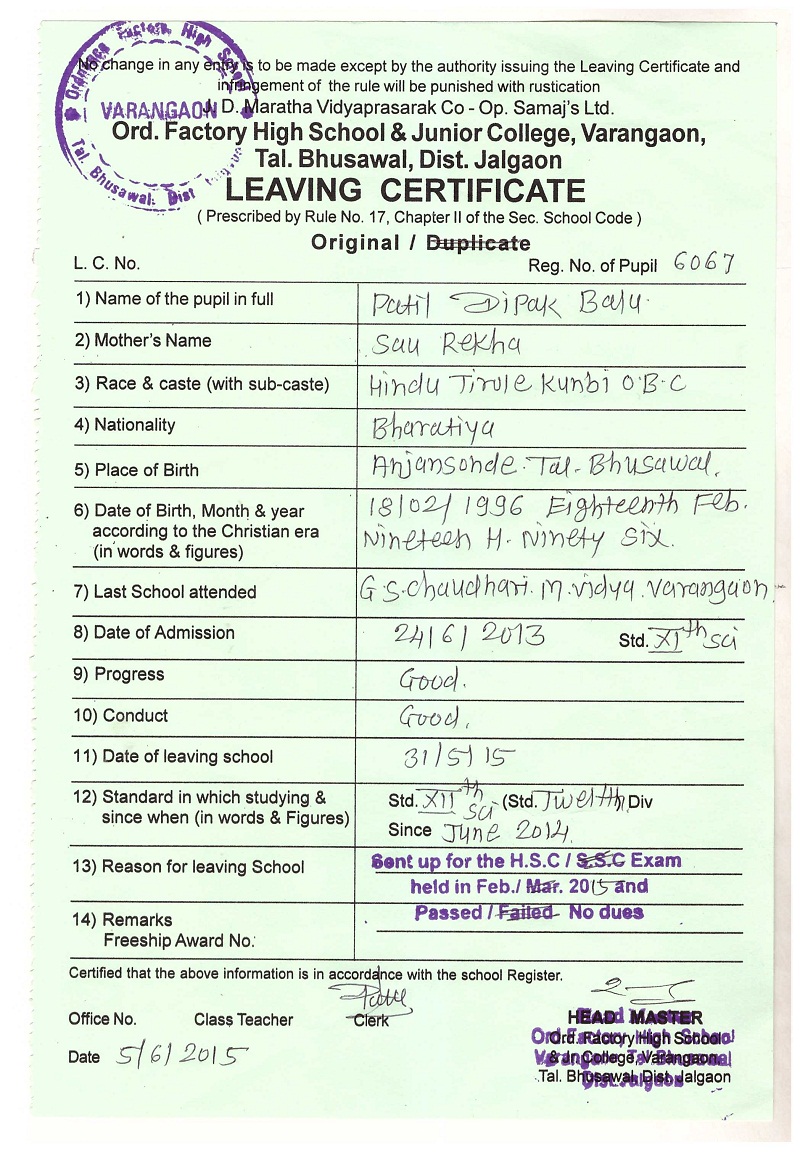 Ordnance Factory High School
VARANGAON
Tal. Bhusawal. Dist
No change in any entry is to be made except by the authority issuing the Leaving Certificate and
infringement of the rule will be punished with rustication
J. D. Maratha Vidyaprasarak Co - Op. Samaj's Ltd.
Ord. Factory High School & Junior College, Varangaon,
Tal. Bhusawal, Dist. Jalgaon
LEAVING CERTIFICATE
( Prescribed by Rule No. 17, Chapter II of the Sec. School Code )
Original / Duplicate
L. C. No. Reg. No. of Pupil 6067
1) Name of the pupil in full Patil Dipak Balu.
2) Mother's Name Sau Rekha
3) Race & caste (with sub-caste) Hindu Tirole Kunbi O.B.C
4) Nationality Bharatiya
5) Place of Birth Anjansonde. Tal- Bhusawal.
6) Date of Birth, Month & year 18/02/1996 Eighteenth Feb.
according to the Christian era Nineteen H. Ninety Six.
(in words & figures)
7) Last School attended G.S.Chaudhari. M.vidya.Varangaon.
8) Date of Admission 24/6/2013 Std. XIth sci
9) Progress Good.
10) Conduct Good.
11) Date of leaving school 31/5/15
12) Standard in which studying & Std. XIIth sci (Std. Twelth) Div
since when (in words & Figures) Since June 2014.
13) Reason for leaving School Sent up for the H.S.C / S.S.C Exam
held in Feb./ Mar. 2015 and
14) Remarks Passed / Failed No dues
Freeship Award No.
Certified that the above information is in accordance with the school Register.
Office No. Class Teacher Clerk HEAD MASTER
Ord. Factory High School
& Jr. College, Varangaon
Tal. Bhusawal, Dist. Jalgaon
Date 5/6/2015